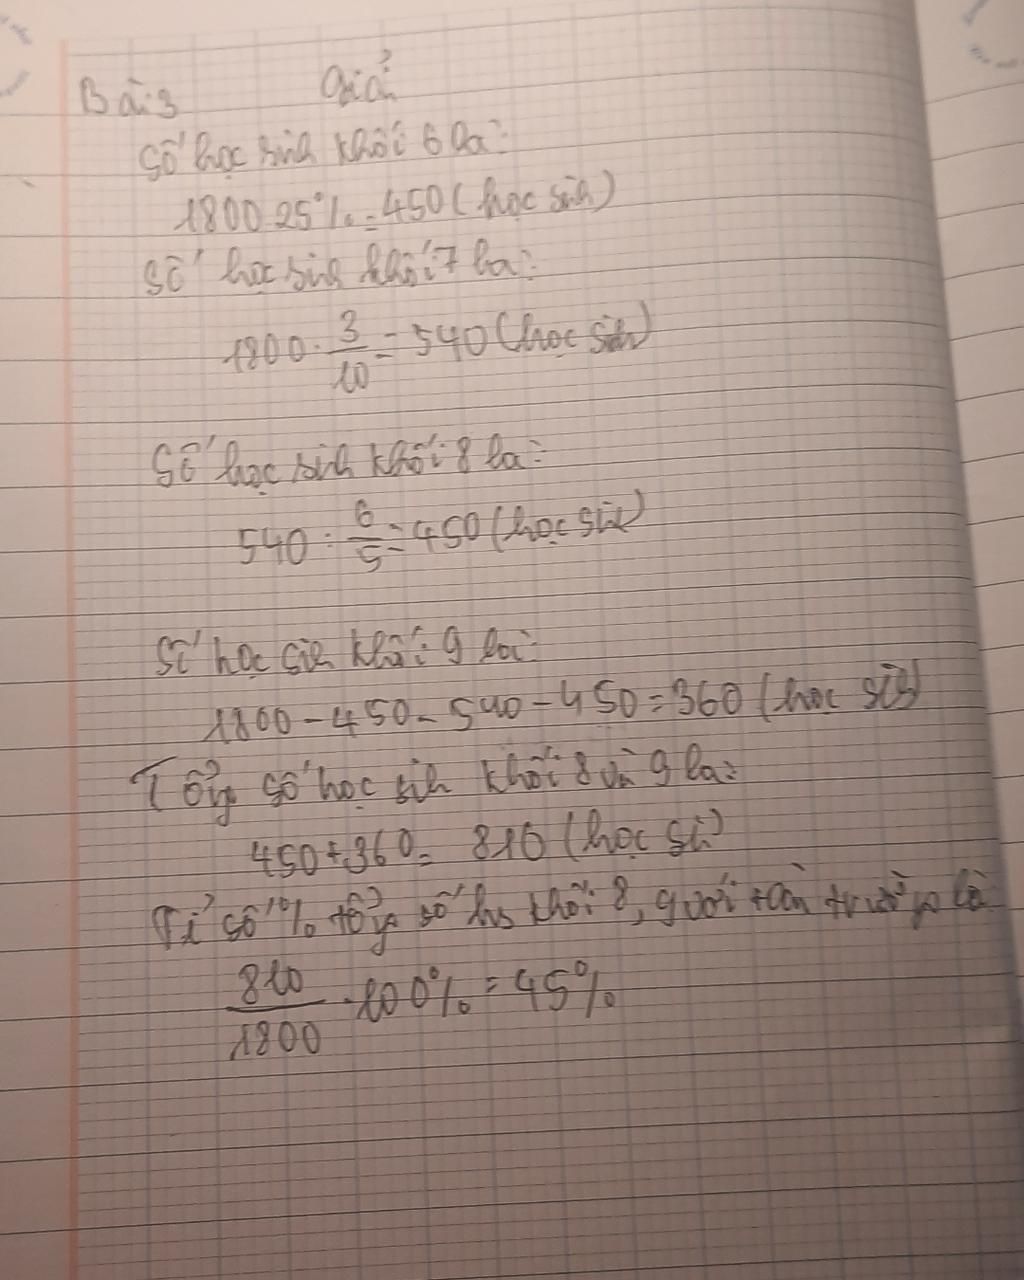 Bài 3 Giải
Số học sinh khối 6 là:
1800.25%=450(học sinh)
Số học sinh khối 7 là:
1800.3/10=540(học sinh)
Số học sinh khối 8 là:
540:6/5=450(học sinh)
Số học sinh khối 9 là:
1800-450-540-450=360(học sinh)
Tổng số học sinh khối 8 và 9 là:
450+360=810(học si)
Tỉ số % tổng số hs khối 8, 9 với toàn trường là
810/1800.100%=45%